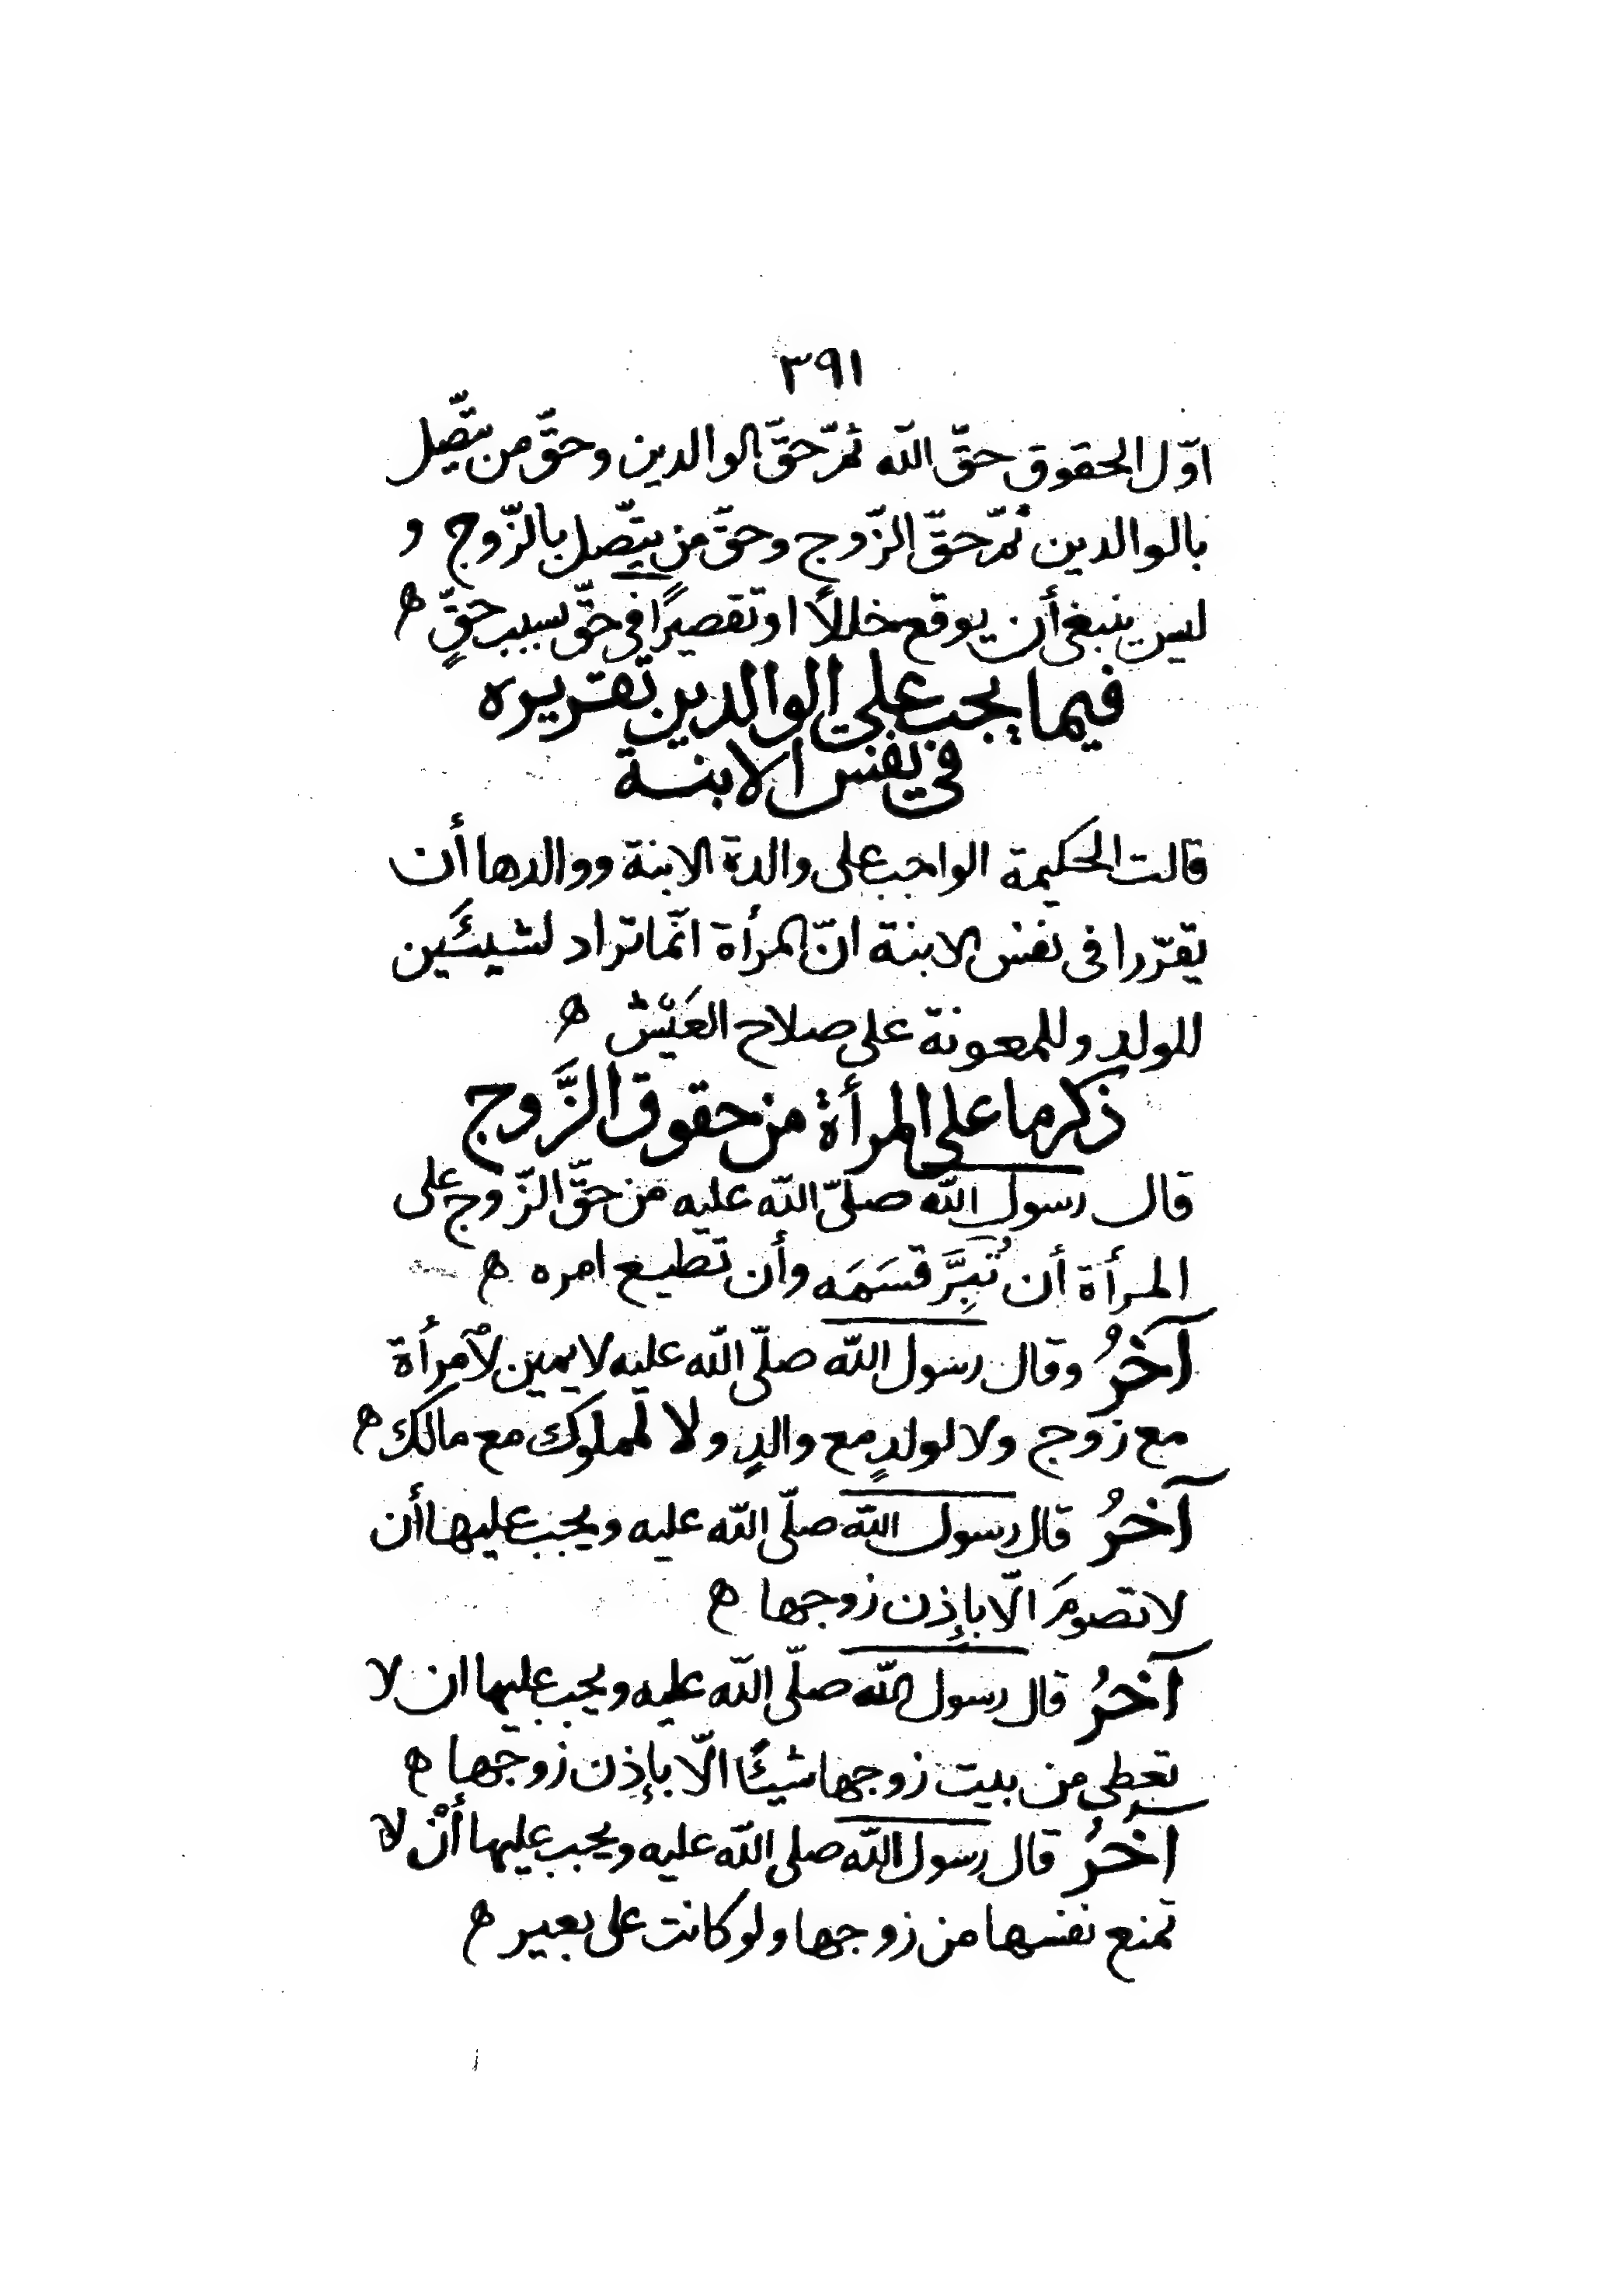 ٣٩١
اوّل الحقوق حقّ اللّه ثمّ حقّ الوالدين وحقّ من يتّصل
بالوالدين ثمّ حقّ الزّوج وحقّ من يتّصل بالزّوج و
ليس ينبغى أن يوقع خللًا او تقصيرًا فى حقّ بسبب حقٍّ ه
فيما يجب على الوالدين تقريره
فى نفس الابنة
قالت الحكيمة الواجب على والدة الابنة ووالدها أن
يقرّرا فى نفس الابنة انّ المرأة انّما تراد لشيئَين
للولد وللمعونة على صلاح العَيْش ه
ذكر ما على المرأة من حقوق الزَّوج
قال رسول اللّه صلّى اللّه عليه من حقّ الزّوج على
المرأة أن تُبِرَّ قَسَمَه وأن تطيع امره ه
آخرُ وقال رسول اللّه صلّى اللّه عليه لا يمين لاْمرأة
مع زوج ولا لولدٍ مع والدٍ ولا لمملوك مع مالك ه
آخرُ قال رسول اللّه صلّى اللّه عليه ويجب عليها أن
لا تصومَ الّا بإذن زوجها ه
آخرُ قال رسول اللّه صلّى اللّه عليه ويجب عليها ان لا
تعطى من بيت زوجها شيئًا الّا بإذن زوجها ه
آخرُ قال رسول اللّه صلى اللّه عليه ويجب عليها أنْ لا
تمنع نفسها من زوجها ولو كانت على بعير ه